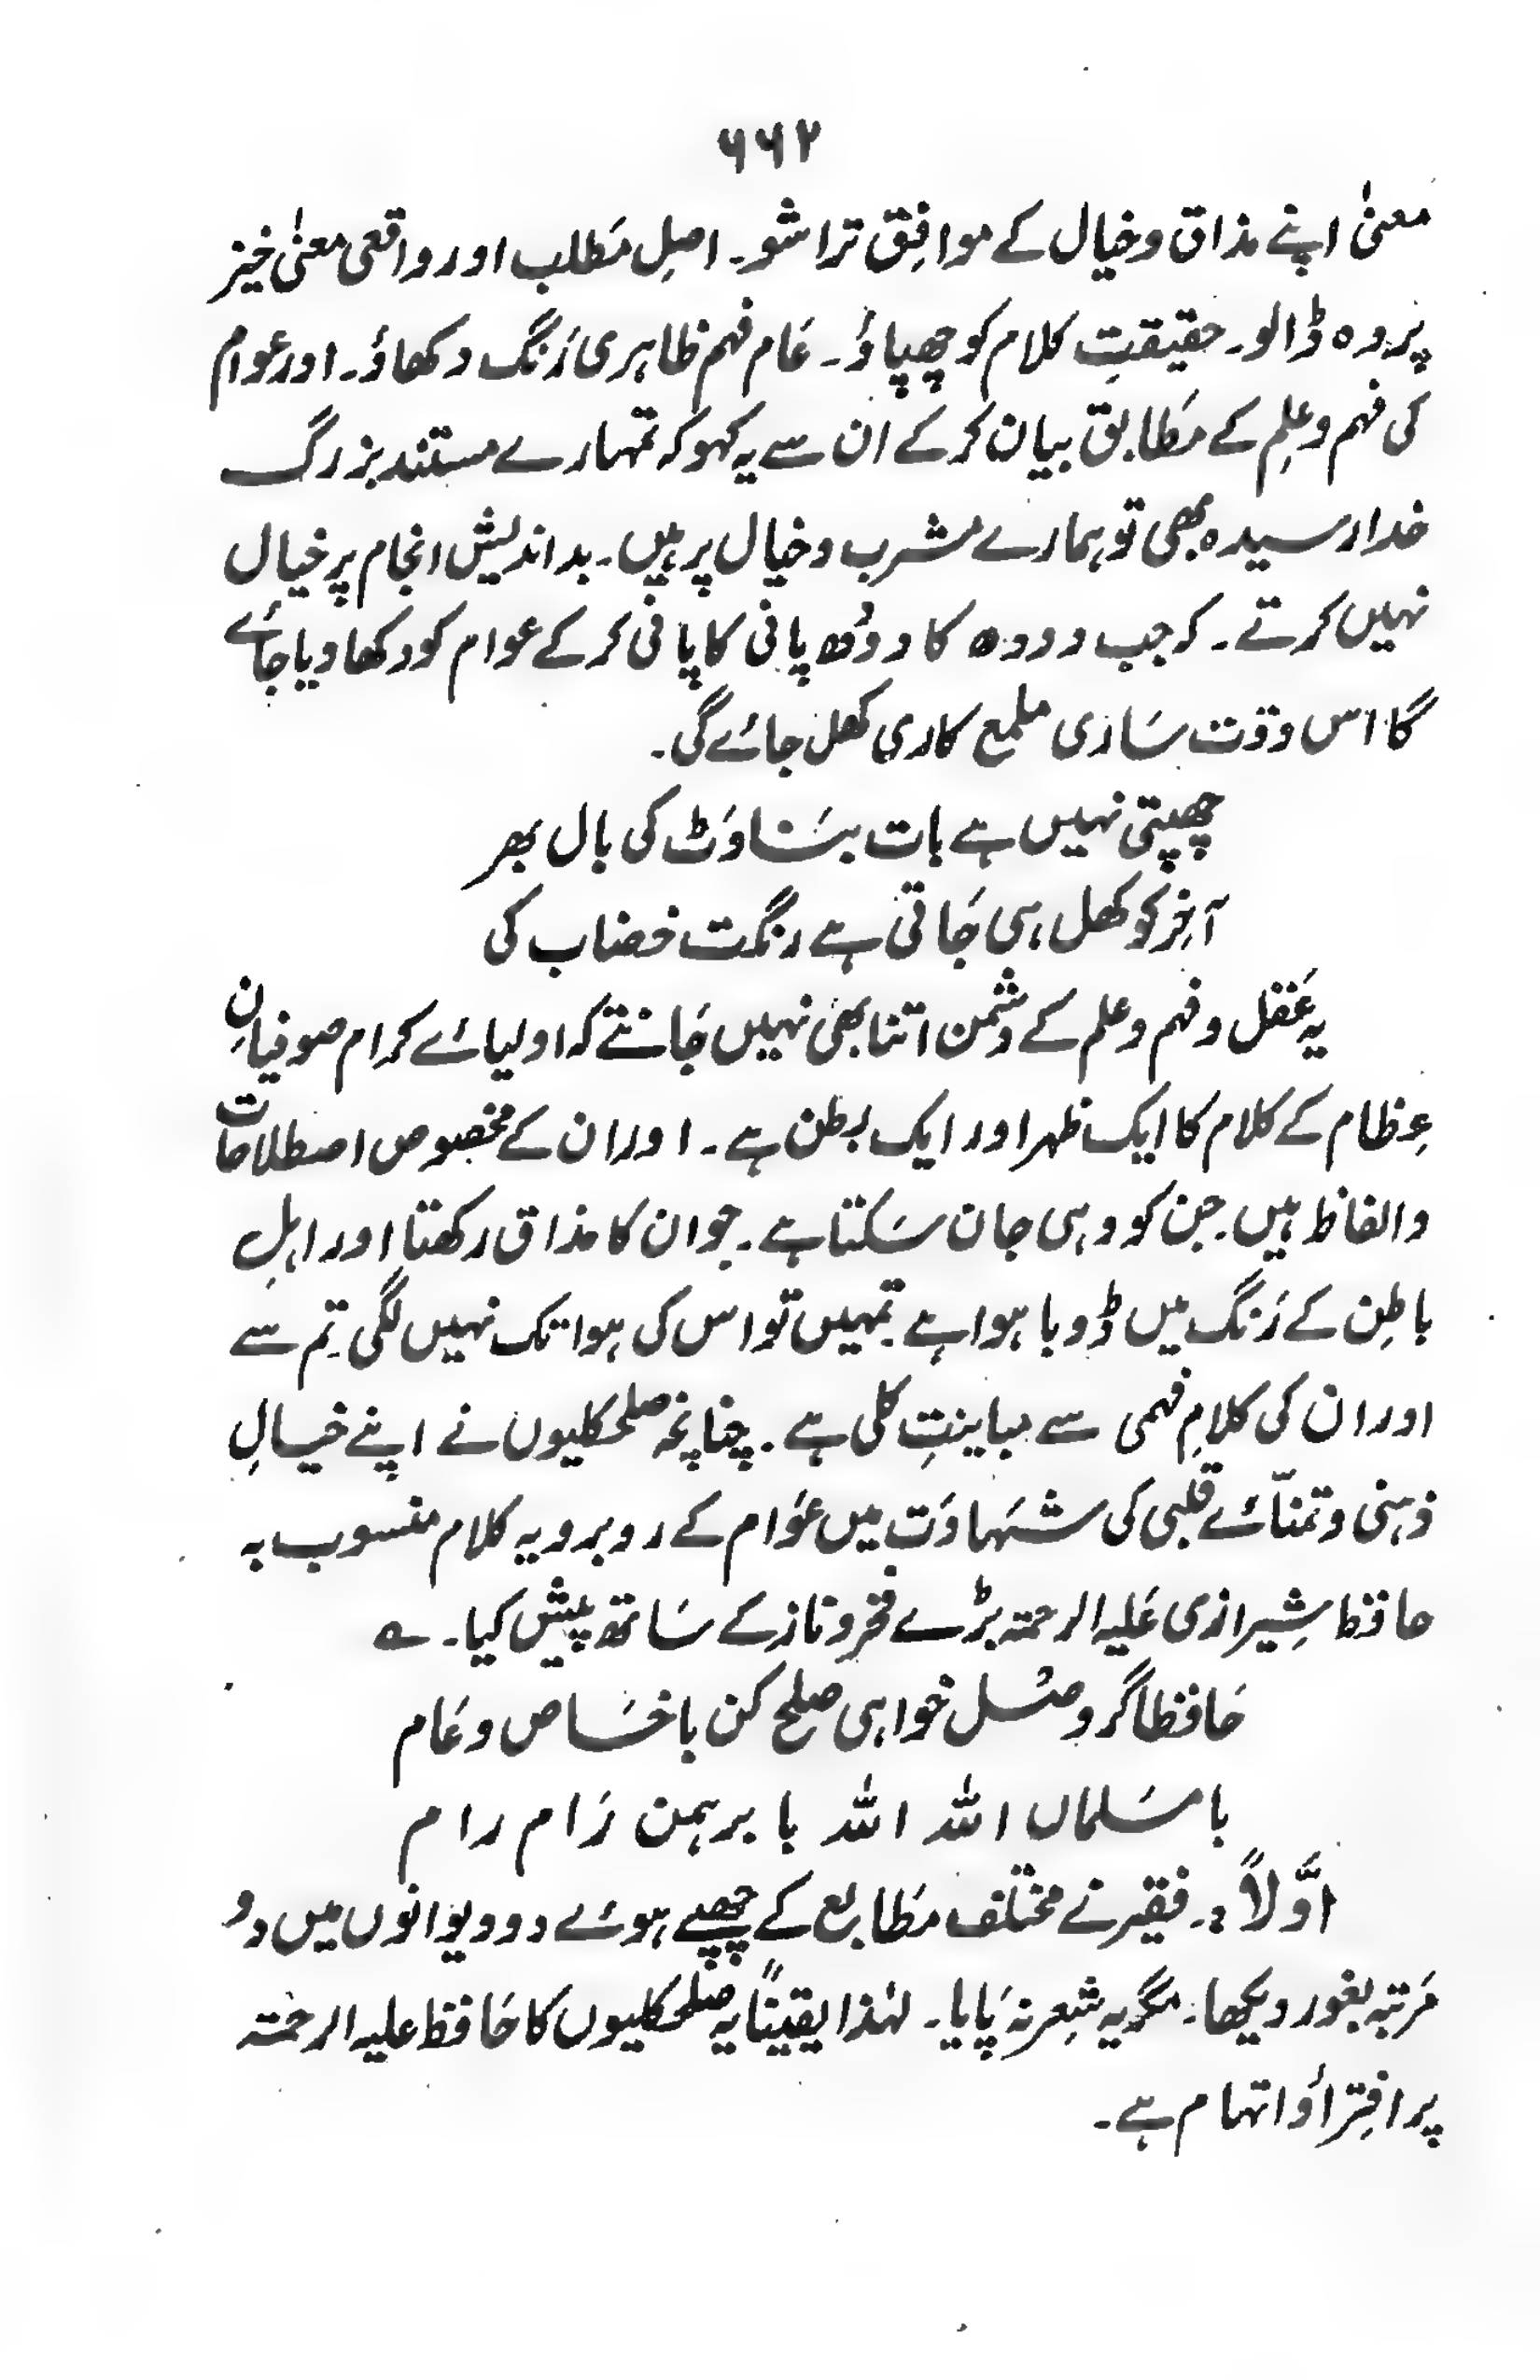 ۶۶۲
معنیٰ اپنے مذاق و خیال کے موافِق تراشو۔ اصلِ مَطلب اور واقعی معنیٰ خیز
پردہ ڈالو۔ حقیقتِ کلام کو چھپاؤ۔ عَام فہم ظاہری رَنگ دکھاؤ۔ اور عوام
کی فہم و علِم کے مَطابق بیان کر کے ان سے یہ کہو کہ تمہارے مستند بزرگ
خدا رسیدہ بھی تو ہمارے مشرب و خیال پر ہیں۔ بداندیش انجام پر خیال
نہیں کرتے۔ کہ جب دودھ کا دودُھ پانی کا پانی کر کے عوام کو دکھا دیا جائے
گا اس وقت سَاری ملمع کاری کھل جائے گی۔
چھپتی نہیں ہے بات بنَاوَٹ کی بال بھر
آخِر کو کھل ہی جَاتی ہے رنگت خضاب کی
یہ عَقل و فہم و علم کے دشمن اتنا بھی نہیں جَانتے کہ اولیائے کرام صوفیانِ
عِظام کے کلام کا ایک ظہر اور ایک بطن ہے۔ اور ان کے مخصوص اصطلاحات
و الفاظ ہیں۔ جن کو وہی جان سَکتا ہے۔ جو ان کا مذاق رکھتا اور اہلِ
باطِن کے رَنگ میں ڈوبا ہوا ہے۔ تمہیں تو اس کی ہوا تک نہیں لگی تم سے
اور ان کی کلامِ فہمی سے مباینتِ کلی ہے۔ چنانچہ صلحکلیوں نے اپنے خیالِ
ذہنی و تمنّائے قلبی کی شہَادَت میں عَوام کے روبرو یہ کلام منسوب بہ
حافظ شِیرازی عَلیہ الرحمتہ بڑے فخر و ناز کے سَاتھ پیش کیا۔ ؎
حَافظا گر وصل خواہی صلح کن با خَاص و عَام
با مسَلماں اللہ اللہ با برہمن رَام رام
اوَّلاً :۔ فقیر نے مختلف مَطابع کے چھپے ہوئے دو دیوانوں میں دو
مَرتبہ بغور دیکھا۔ مگر یہ شِعر نہ پَایا۔ لہٰذا یقیناً یہ صلحکلیوں کا حَافظ علیہ الرحمتہ
پر افتِرأ و اتہام ہے۔